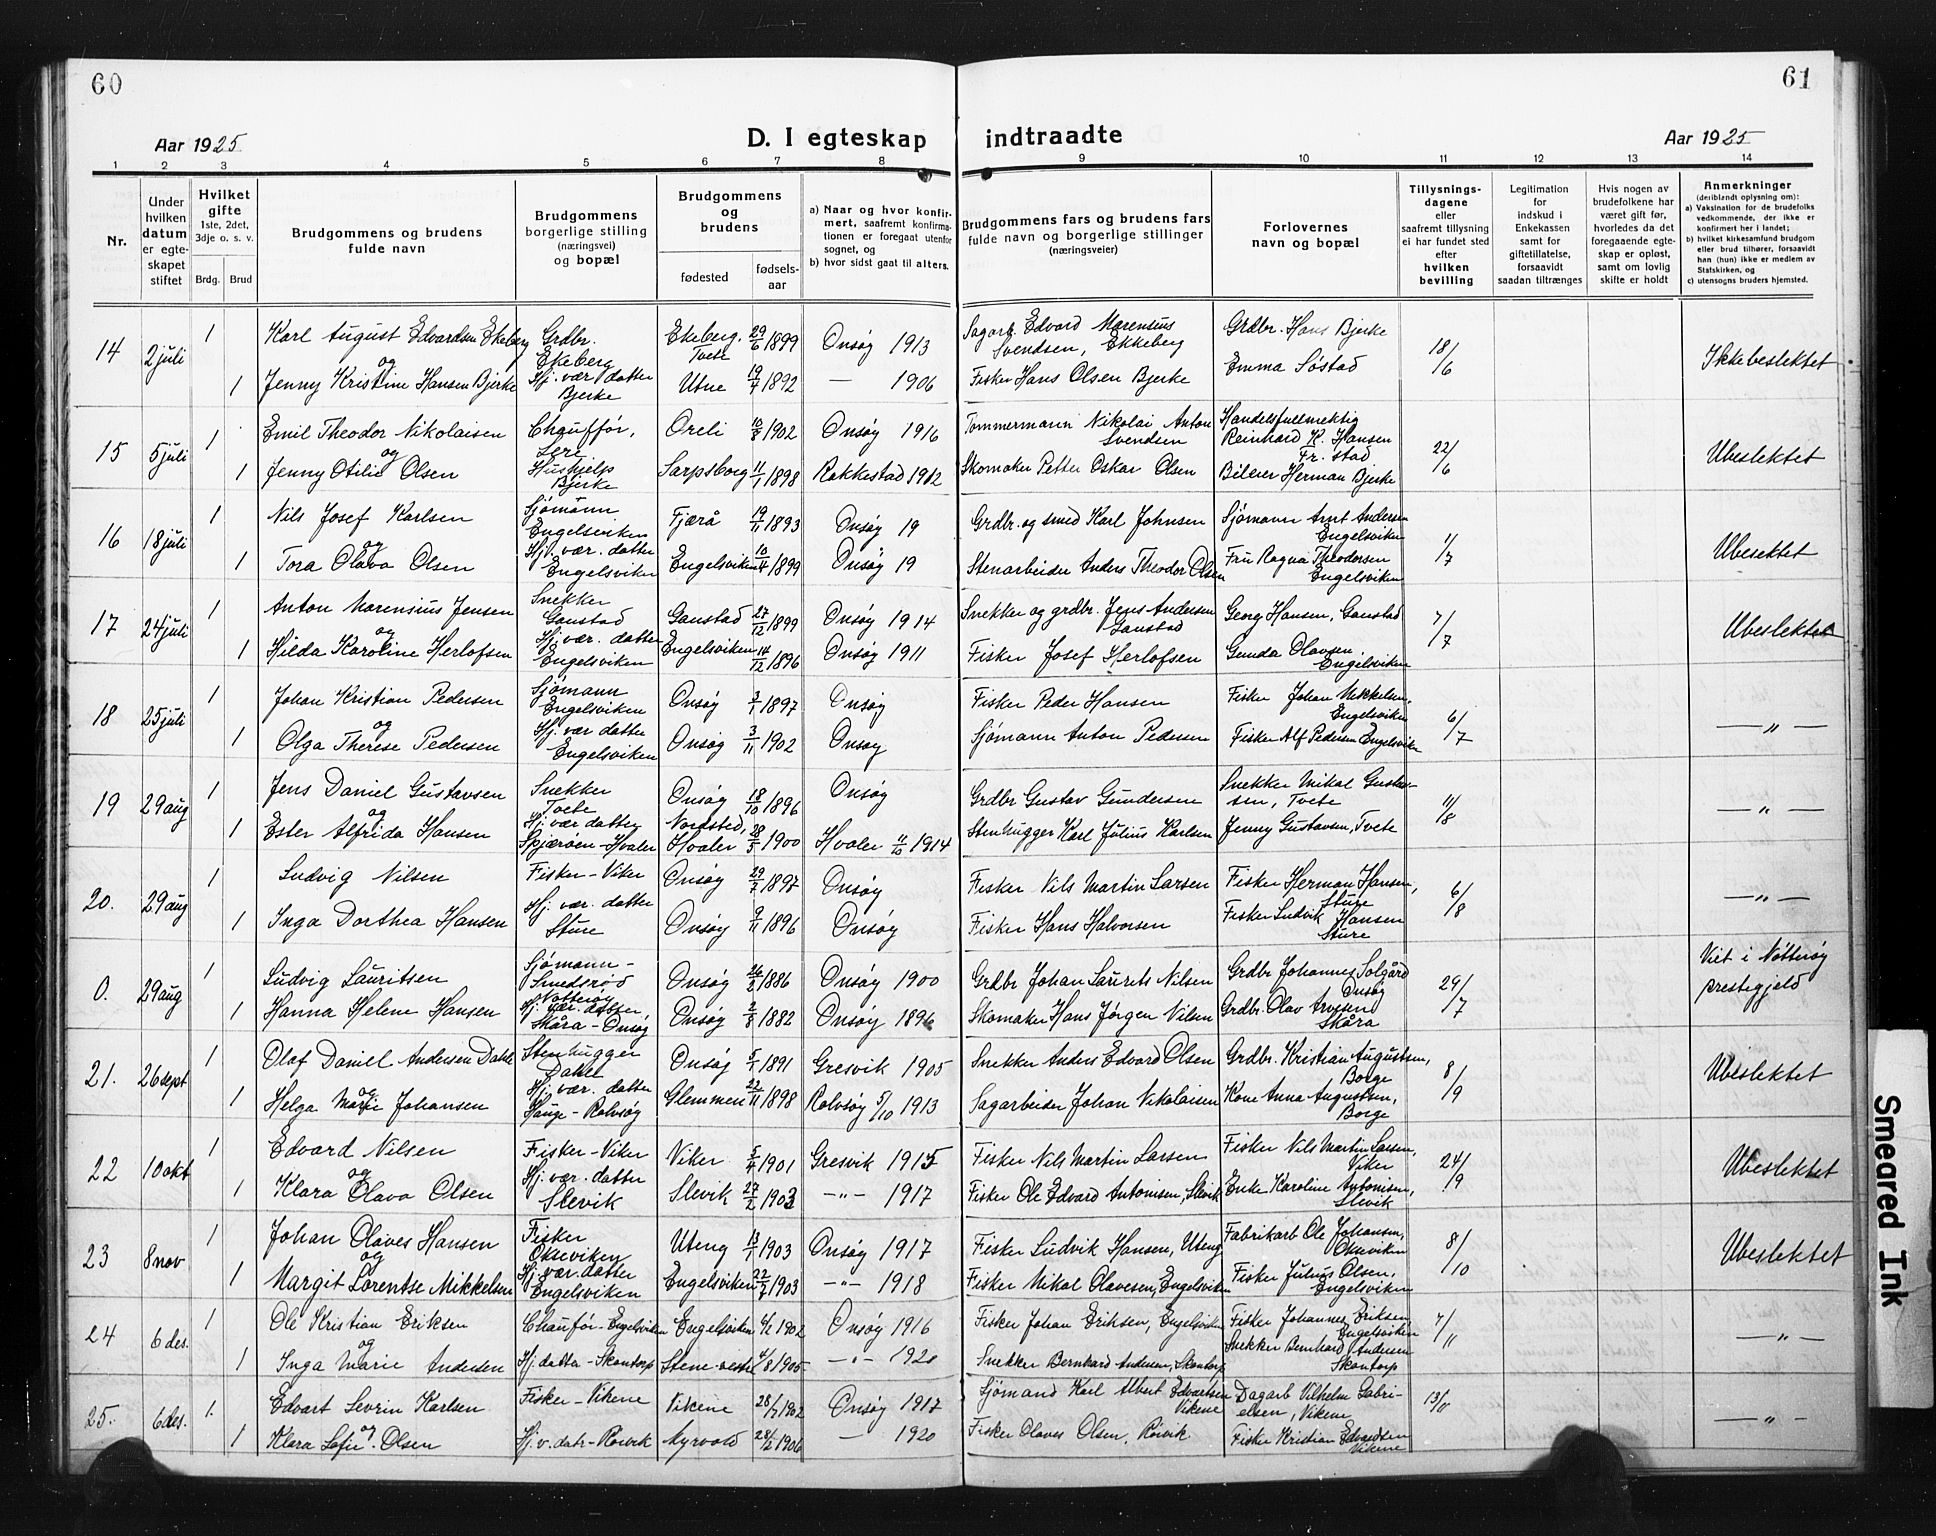 60
61
Aar 1925
D. I egteskap indtraadte
Aar 1925
1 2 3 4 5 6 7 8 9 10 11 12 13 14
Nr.
Under hvilken datum er egteskapet stiftet
Hvilket gifte 1ste, 2det, 3dje o. s. v.
Brdg. Brud
Brudgommens og brudens fulde navn
Brudgommens borgerlige stilling (næringsvei) og bopæl
Brudgommens og brudens
fødested
fødselsaar
a) Naar og hvor konfirmert, saafremt konfirmationen er foregaat utenfor sognet, og
b) hvor sidst gaat til alters.
Brudgommens fars og brudens fars fulde navn og borgerlige stillinger (næringsveier)
Forlovernes navn og bopæl
Tillysningsdagene eller saafremt tillysning ei har fundet sted efter hvilken bevilling
Legitimation for indskud i Enkekassen samt for giftetillatelse, forsaavidt saadan tiltrænges
Hvis nogen av brudefolkene har været gift før, hvorledes da det foregaaende egteskap er opløst, samt om lovlig skifte er holdt
Anmerkninger (deriblandt oplysning om):
a) Vaksination for de brudefolks vedkommende, der ikke er konfirmert her i landet;
b) hvilket kirkesamfund brudgom eller brud tilhører, forsaavidt han (hun) ikke er medlem av Statskirken, og
c) utensogns bruders hjemsted.
14 2 juli 1 Karl August Edvardsen Ekeberg Grdbr. Ekeberg Ekeberg, Tvete 29/6 1899 Onsøy 1913 Sagarb. Edvard Marensius Svendsen, Ekkeberg Grdbr. Hans Bjerke 18/6 Ikke beslektet
og
1 Jenny Kristine Hansen Bjerke Hj. vær datter Bjerke Utne 19/7 1892 — 1906 Fisker Hans Olsen Bjerke Emma Søstad
15 5 juli 1 Emil Theodor Nikolaisen Chauffør, Leri Oreli 10/8 1902 Onsøy 1916 Tømmermann Nikolai Anton Svendsen Handelsfullmektig Reinhard K. Hansen Fr. stad 22/6 Ubeslektet
og
1 Jenny Otilie Olsen Hushjelp Bjerke Sarpsborg 11/1 1898 Rakkestad 1912 Skomaker Petter Oskar Olsen Bileier Herman Bjerke
16 18 juli 1 Nils Josef Karlsen Sjømann Engelsviken Fjærå 19/11 1893 Onsøy 19 Grdbr. og smed Karl Johnsen Sjømann Arnt Andersen Engelsviken 1/7 Ubesektet
og
1 Tora Olava Olsen Hj. vær. datter Engelsviken Engelsviken 10/4 1899 Onsøy 19 Stenarbeider Anders Theodor Olsen Fru Ragna Theodorsen Engelsviken
17 24 juli 1 Anton Marensius Jensen Snekker Gaustad Gaustad 27/12 1899 Onsøy 1914 Snekker og grdbr. Jens Andersen Gaustad Georg Hansen, Gaustad 7/7 Ubeslektet
og
1 Hilda Karoline Herlofsen Hj. vær. datter Engelsviken Engelsviken 14/12 1896 Onsøy 1911 Fisker Josef Herlofsen Gunda Olavsen, Engelsviken
18 25 juli 1 Johan Kristian Pedersen Sjømann Engelsviken Onsøy 3/1 1897 Onsøy Fisker Peder Hansen Fisker Johan Mikkelsen, Engelsviken 6/7 — " —
og
1 Olga Therese Pedersen Hj. vær datter Engelsviken Onsøy 3/11 1902 Onsøy Sjømann Anton Pedersen Fisker Alf Pedersen Engelsviken
19 29 aug 1 Jens Daniel Gustavsen Snekker Tvete Onsøy 18/10 1896 Onsøy Grdbr Gustav Gundersen Snekker Mikal Gustavsen, Tvete 11/8 — " —
og
1 Ester Alfrida Hansen Hj. vær datter Spjærøen - Hvaler Nordsted, Hvaler 28/5 1900 Hvaler 11/10 1914 Stenhugger Karl Julius Karlsen Jenny Gustavsen, Tvete
20. 29 aug 1 Ludvig Nilsen Fisker - Viker Onsøy 29/7 1897 Onsøy Fisker Nils Martin Larsen Fisker Herman Hansen, Sture 6/8 — " —
1 Inga Dorthea Hansen Hj. vær. datter Sture Onsøy 9/11 1896 Onsøy Fisker Hans Halvorsen Fisker Ludvik Hansen Sture
0. 29 aug 1 Ludvig Lauritsen Sjømann - Smedsrød Nøtterøy Onsøy 26/2 1886 Onsøy 1900 Grdbr Johan Laurets Nilsen Grdbr Johannes Solgård Onsøy 29/7 Viet i Nøtterøy prestegjeld
1 Hanna Helene Hansen Hj. vær. datter Skåra - Onsøy Onsøy 2/8 1882 Onsøy 1896 Skomaker Hans Jørgen Nilsen Grdbr. Olav Arvesen Skåra
21. 26 sept 1 Olaf Daniel Andersen Dahle Stenhugger Dahle Onsøy 5/1 1891 Gresvik 1905 Snekker Anders Edvard Olsen Grdbr. Kristian Augustsen, Borge 8/9 Ubeslektet
og
1 Helga Marie Johansen Hj. vær. datter Hauge - Rolvsøy Glemmen 22/11 1898 Rolvsøy 5/10 1913 Sagarbeider Johan Nikolaisen Kone Anna Augustsen, Borge
22 10 okt 1 Edvard Nilsen Fisker - Viker Viker 5/4 1901 Gresvik 1915 Fisker Nils Martin Larsen Fisker Nils Martin Larsen, Viker 24/9 Ubeslektet
og
1 Klara Olava Olsen Hj. vær. datter Slevik Slevik 27/2 1903 — " — 1917 Fisker Ole Edvard Antonisen, Slevik Enke Karoline Antonisen, Slevik
23 8 nov 1 Johan Olaves Hansen Fisker Okseviken Uteng 13/1 1903 Onsøy 1917 Fisker Ludvik Hansen, Uteng Fabrikarb Ole Johansen, Okseviken 8/10 Ubeslektet
og
1 Margit Lorentse Mikkelsen Hj. vær. datter Engelsviken Engelsviken 22/7 1903 — " — 1918 Fisker Mikal Olavesen, Engelsviken Fisker Julius Olsen, Engelsviken
24 6 des. 1 Ole Kristian Eriksen Chauffør - Engelsviken Engelsviken 6/2 1902 Onsøy 1916 Fisker Johan Eriksen, Engelsviken Fisker Johannes Eriksen, Engelsviken 7/11 — " —
og
1 Inga Marie Andersen Hj. datter - Skontorp Stene - vestre 4/8 1905 — " — 1920 Snekker Bernhard Andersen, Skontorp Snekker Bernhard Andersen Skontorp
25. 6 des. 1. Edvart Sevrin Karlsen Fisker - Vikene Vikene 28/7 1902 Onsøy 1917 Sjømand Karl Albert Edvartsen Vikene Dagarb Vilhelm Gabrielsen, Vikene 13/11 — " —
og
1 Klara Sofie Olsen Hj. v. datr - Røivik Myrvold 28/2 1906 — 1920 Fisker Olaves Olsen, Røivik Fisker Kristian Edvardsen Vikene
Smeared Ink